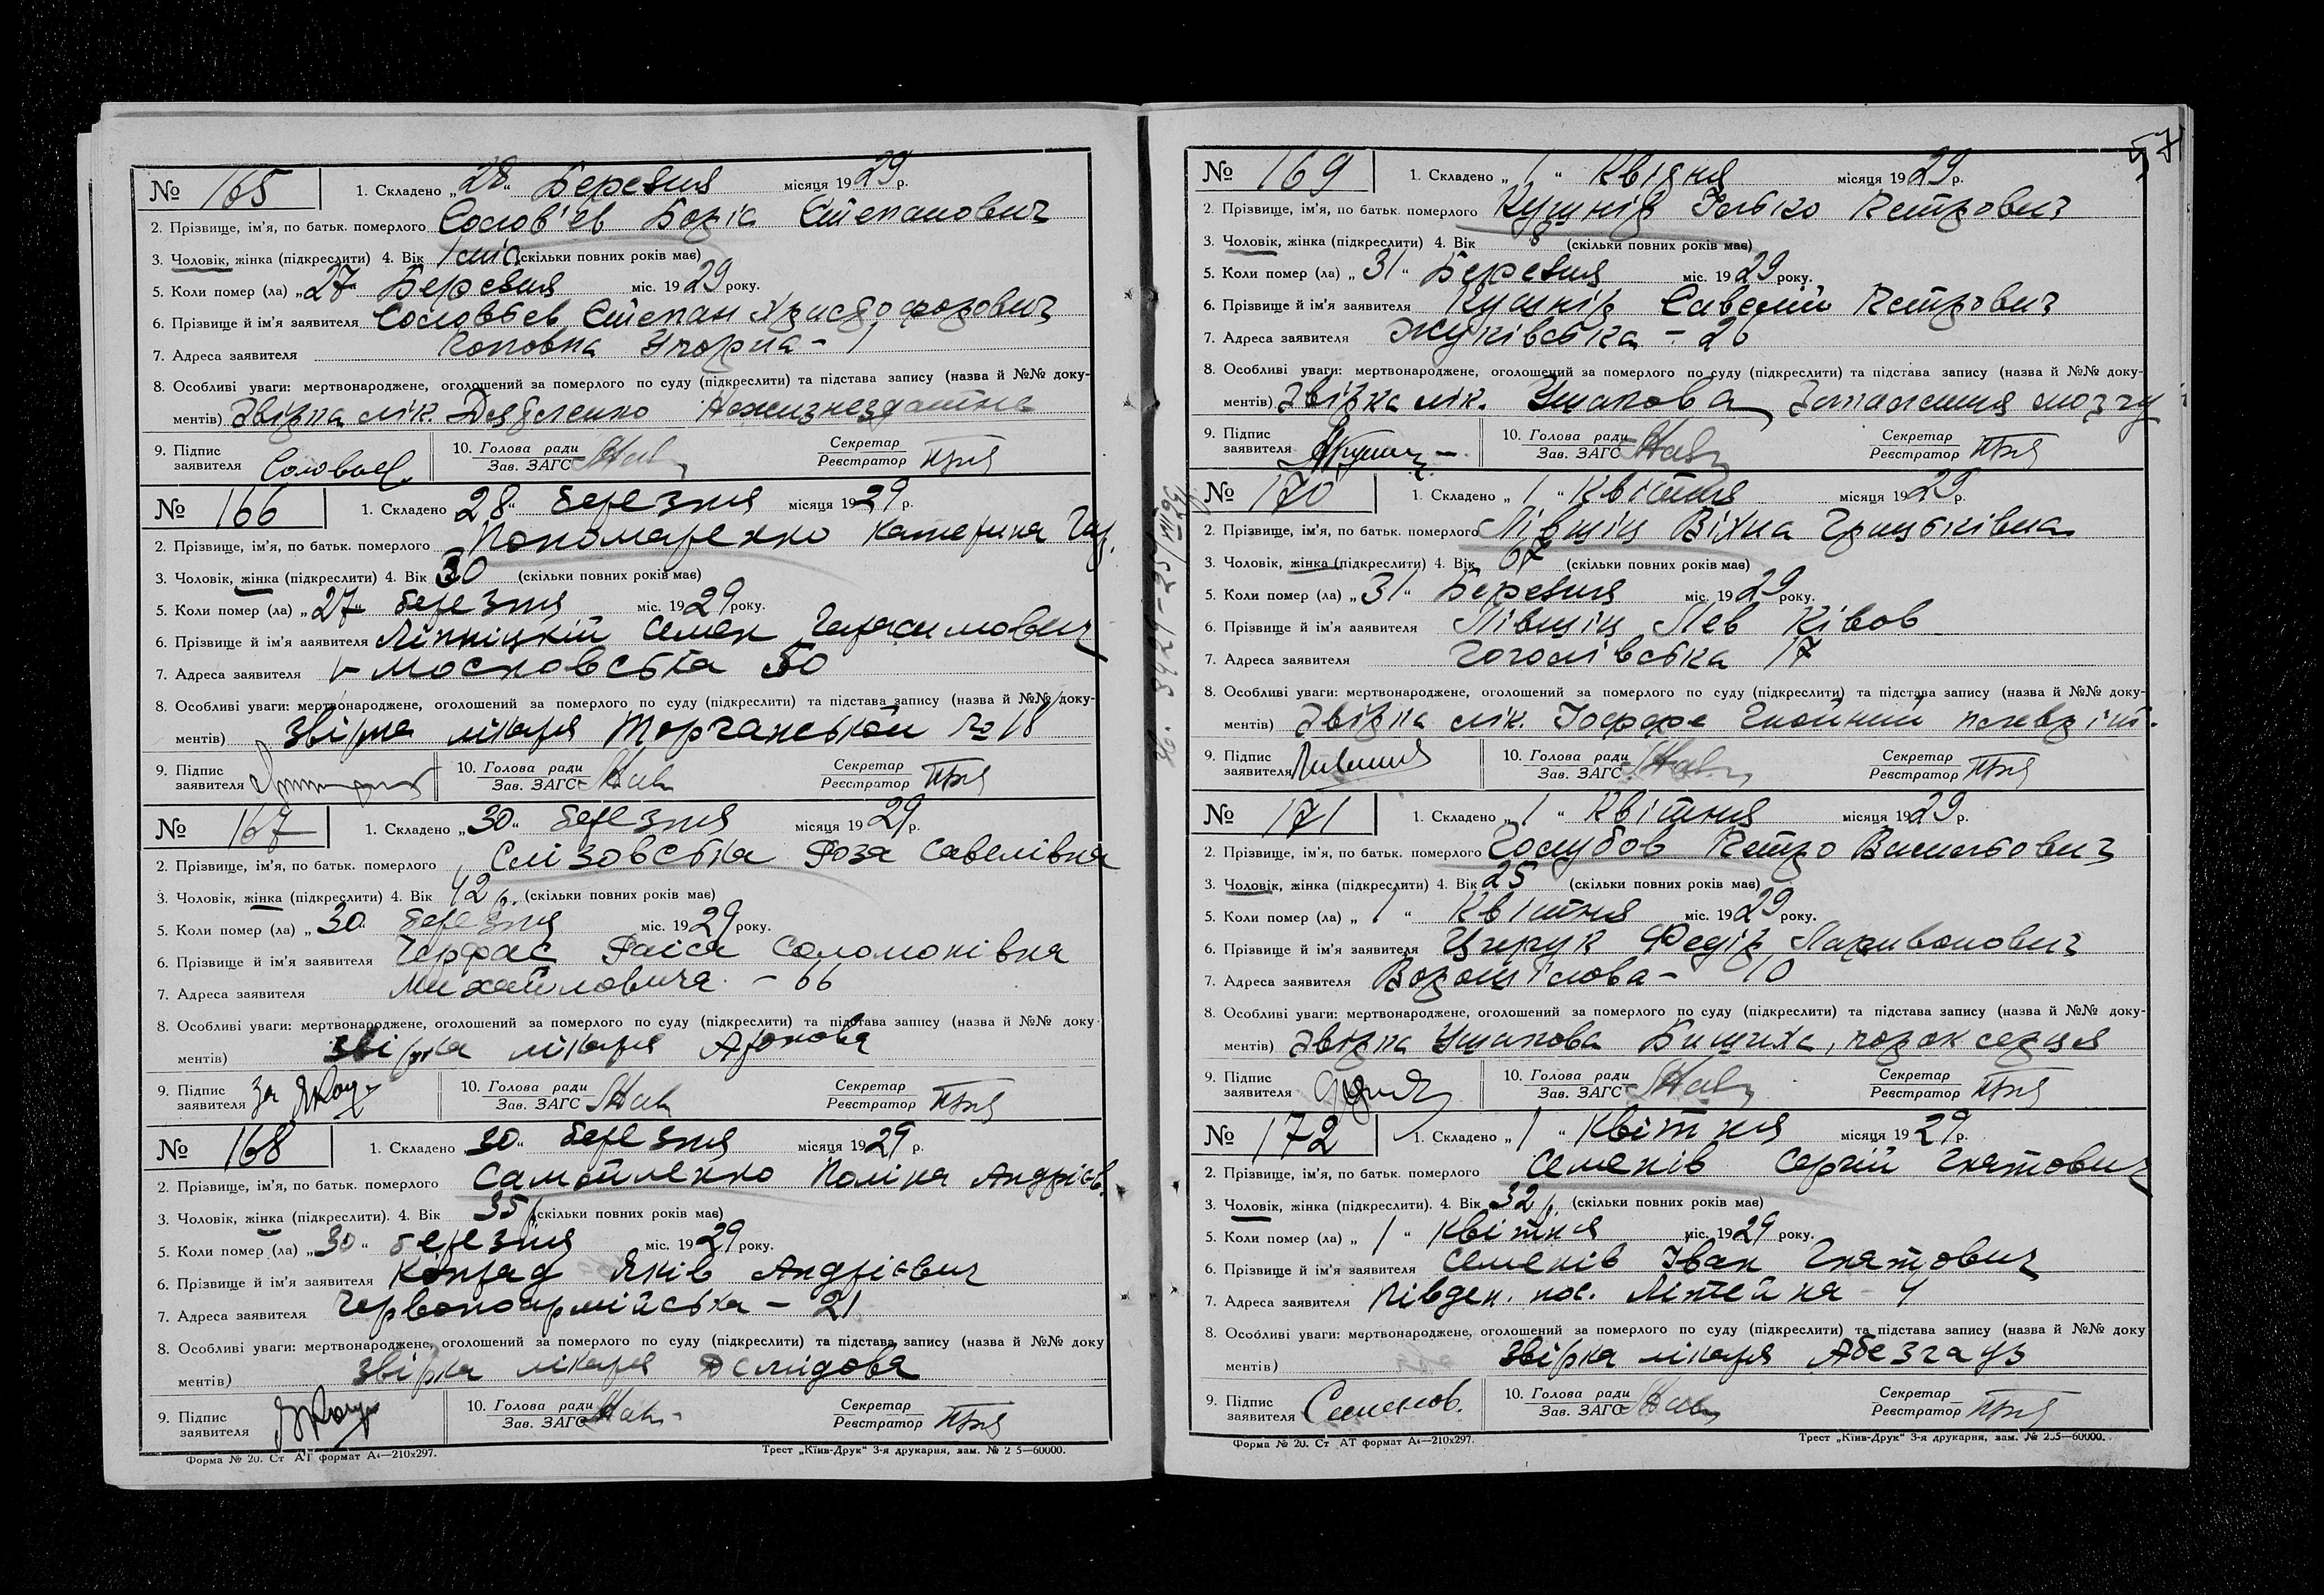 № 165 1. Складено „28“ Березня місяця 1929 р.
2. Прізвище, ім'я, по батьк. померлого Солов'єв Боріс Степанович
3. Чоловік, жінка (підкреслити) 4. Вік 1 міс. (скільки повних років має)
5. Коли помер (ла) „27“ Березня міс. 1929 року.
6. Прізвище й ім'я заявителя Соловьев Степан Христофорович
7. Адреса заявителя
8. Особливі уваги: мертвонароджене, оголошений за померлого по суду (підкреслити) та підстава запису (назва й №№ доку-
ментів) Звірка лік.
9. Підпис заявителя Соловьев 10. Голова ради Зав. ЗАГС Секретар Реєстратор
№ 166 1. Складено 28“ березня місяця 1929 р.
2. Прізвище, ім'я, по батьк. померлого Пономаренко Катерина
3. Чоловік, жінка (підкреслити) 4. Вік 30 (скільки повних років має)
5. Коли помер (ла) „27“ березня міс. 1929 року.
6. Прізвище й ім'я заявителя Ліпніцкій Семен Герасимович
7. Адреса заявителя Московська 50
8. Особливі уваги: мертвонароджене, оголошений за померлого по суду (підкреслити) та підстава запису (назва й №№ доку-
ментів) Звірка лікаря Торганської № 18
9. Підпис заявителя 10. Голова ради Зав. ЗАГС Секретар Реєстратор
№ 167 1. Складено „30“ березня місяця 1929 р.
2. Прізвище, ім'я, по батьк. померлого Слізовська Роза Савелівна
3. Чоловік, жінка (підкреслити) 4. Вік 42 р. (скільки повних років має)
5. Коли помер (ла) „30“ березня міс. 1929 року.
6. Прізвище й ім'я заявителя Раіса Соломонівна
7. Адреса заявителя Михайловича - 66
8. Особливі уваги: мертвонароджене, оголошений за померлого по суду (підкреслити) та підстава запису (назва й №№ доку-
ментів) Звірка лікаря Аронова
9. Підпис заявителя за 10. Голова ради Зав. ЗАГС Секретар Реєстратор
№ 168 1. Складено 30“ березня місяця 1929 р.
2. Прізвище, ім'я, по батьк. померлого Самойленко Поліна Андрієв.
3. Чоловік, жінка (підкреслити). 4. Вік 35 р. (скільки повних років має)
5. Коли помер (ла) „30“ березня міс. 1929 року.
6. Прізвище й ім'я заявителя Конрад Яків Андрієвич
7. Адреса заявителя Червоноармійська - 21
8. Особливі уваги: мертвонароджене, оголошений за померлого по суду (підкреслити) та підстава запису (назва й №№ доку
ментів) Звірка лікаря Демідова
9. Підпис заявителя 10. Голова ради Зав. ЗАГС Секретар Реєстратор
Форма № 20. Ст АТ формат А4—210х297. Трест „Київ-Друк“ 3-я друкарня, зам. № 2 5—60000.
57
№ 169 1. Складено „1“ Квітня місяця 1929 р.
2. Прізвище, ім'я, по батьк. померлого Кушнір Ілько Петрович
3. Чоловік, жінка (підкреслити) 4. Вік 8 (скільки повних років має)
5. Коли помер (ла) „31“ Березня міс. 1929 року.
6. Прізвище й ім'я заявителя Кушнір Савелій Петрович
7. Адреса заявителя Жуківська - 26
8. Особливі уваги: мертвонароджене, оголошений за померлого по суду (підкреслити) та підстава запису (назва й №№ доку-
ментів) Звірка лік. Ушакова, Запалення мозгу
9. Підпис заявителя 10. Голова ради Зав. ЗАГС Секретар Реєстратор
№ 170 1. Складено „1“ Квітня місяця 1929 р.
2. Прізвище, ім'я, по батьк. померлого Лівшіц Віхна Грицьківна
3. Чоловік, жінка (підкреслити) 4. Вік 67 (скільки повних років має)
5. Коли помер (ла) „31“ Березня міс. 1929 року.
6. Прізвище й ім'я заявителя Лівшіц Лев Ківов
7. Адреса заявителя Гоголівська 17
8. Особливі уваги: мертвонароджене, оголошений за померлого по суду (підкреслити) та підстава запису (назва й №№ доку-
ментів) Звірка лік. Іоффе Гнойний плевріт.
9. Підпис заявителя Лившиц 10. Голова ради Зав. ЗАГС Секретар Реєстратор
№ 171 1. Складено „1“ Квітня місяця 1929 р.
2. Прізвище, ім'я, по батьк. померлого Голубов Петро Васильович
3. Чоловік, жінка (підкреслити) 4. Вік 25 (скільки повних років має)
5. Коли помер (ла) „1“ Квітня міс. 1929 року.
6. Прізвище й ім'я заявителя Федір Ларивонович
7. Адреса заявителя Ворошілова - 10
8. Особливі уваги: мертвонароджене, оголошений за померлого по суду (підкреслити) та підстава запису (назва й №№ доку-
ментів) Звірка Ушакова Бишиха, порок серця
9. Підпис заявителя 10. Голова ради Зав. ЗАГС Секретар Реєстратор
№ 172 1. Складено „1“ Квітня місяця 1929 р.
2. Прізвище, ім'я, по батьк. померлого Семенів Сергій Гнатович
3. Чоловік, жінка (підкреслити). 4. Вік 32 р. (скільки повних років має)
5. Коли помер (ла) „1“ Квітня міс. 1929 року.
6. Прізвище й ім'я заявителя Семенів Іван Гнатович
7. Адреса заявителя Півден. пос. Літейна - 4
8. Особливі уваги: мертвонароджене, оголошений за померлого по суду (підкреслити) та підстава запису (назва й №№ доку
ментів) Звірка лікаря Абезгауз
9. Підпис заявителя Семенов. 10. Голова ради Зав. ЗАГС Секретар Реєстратор
Форма № 20. Ст АТ формат А4—210х297. Трест „Київ-Друк“ 3-я друкарня, зам. № 2.5—60000.